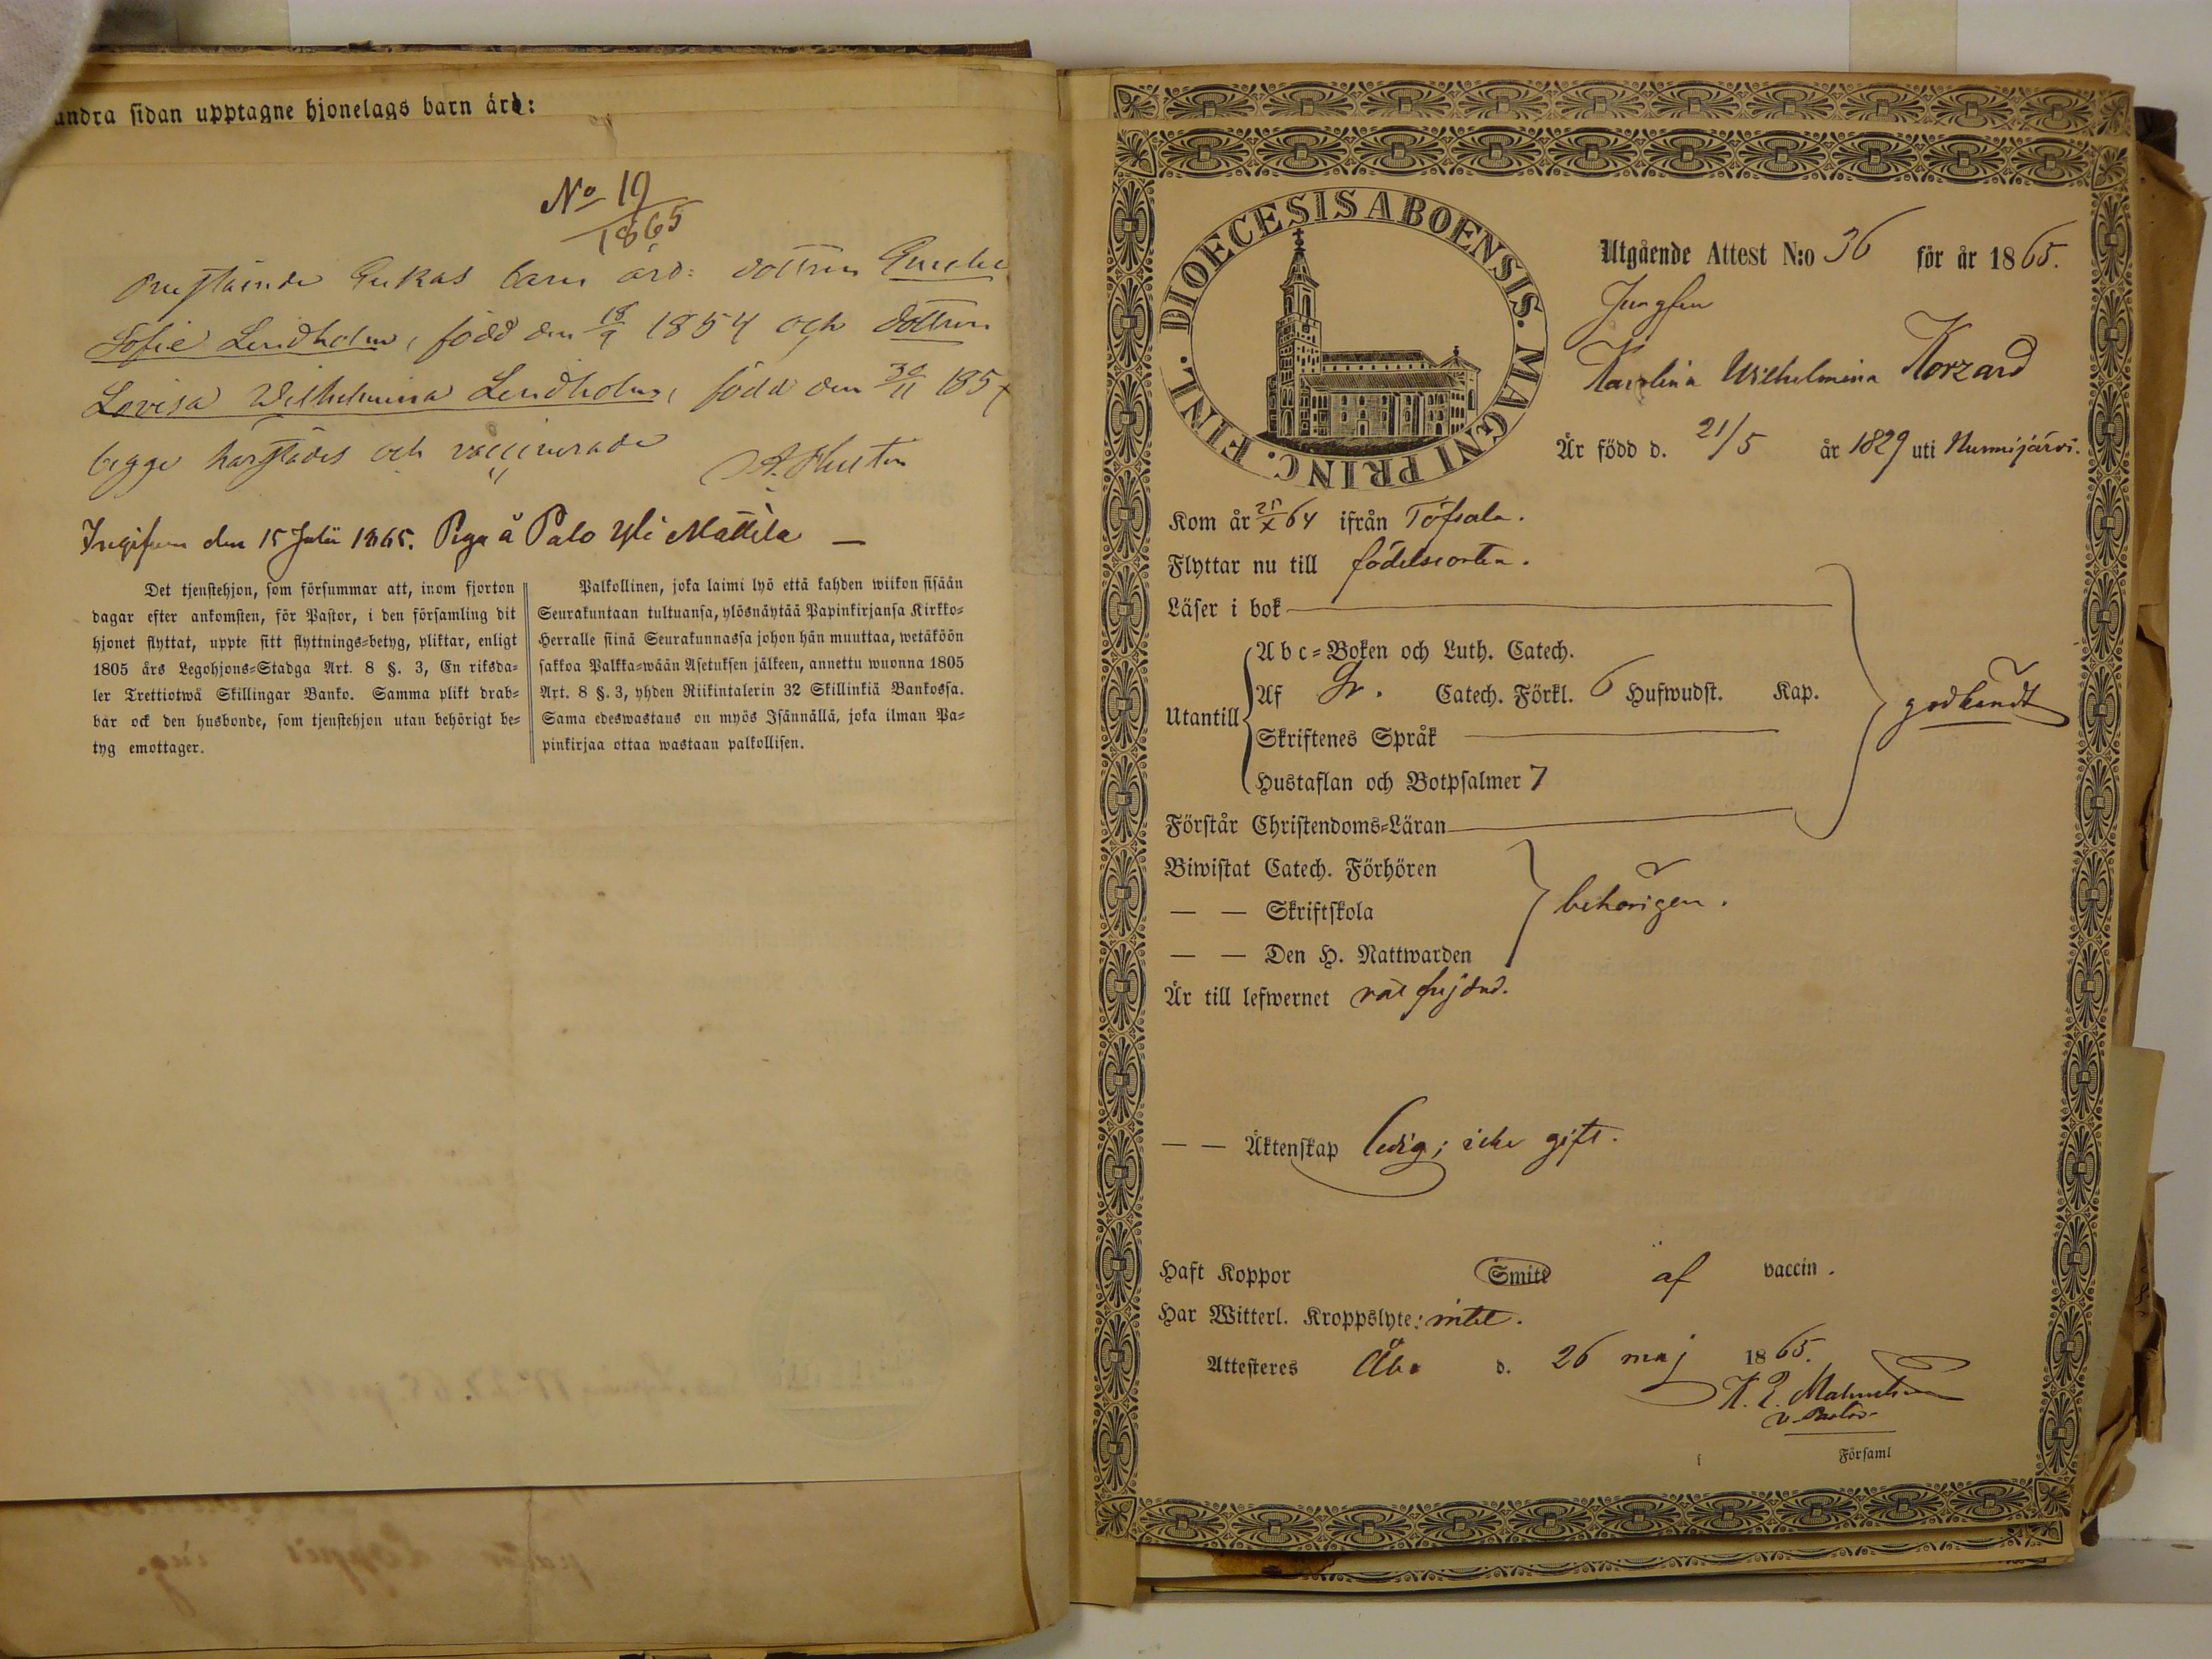 andra sidan upptagne hjonelags barn äro:
No 19
1865
Omstående Enkas barn äro: dottren
Sofie Lindholm, född den 18/9 1854 och dottren
Lovisa Wilhelmina Lindholm, född den 30/11 185
begge härstädes och vaccinerade
Ingifven den 15 Julii 1865. Piga å Palo Yli Mattila —
Det tjenstehjon, som försummar att, inom fjorton
dagar efter ankomsten, för Pastor, i den församling dit
hjonet flyttat, uppte sitt flyttnings=betyg, pliktar, enligt
1805 års Legohjons=Stadga Art. 8 §. 3, En riksda=
ler Trettiotwå Skillingar Banko. Samma plikt drab=
bar ock den husbonde, som tjenstehjon utan behörigt be=
tyg emottager.
Palkollinen, joka laimi lyö että kahden wiikon sisään
Seurakuntaan tultuansa, ylösnäytää Papinkirjansa Kirkko=
Herralle siinä Seurakunnassa johon hän muuttaa, wetäköön
sakkoa Palkka=wään Asetuksen jälkeen, annettu wuonna 1805
Art. 8 §. 3, yhden Riikintalerin 32 Skillinkiä Bankossa.
Sama edeswastaus on myös Isännällä, joka ilman Pa=
pinkirjaa ottaa wastaan palkollisen.
DIOECESIS ABOENSIS. MAGNI PRINC. FINL.
Utgående Attest N:o 36 för år 1865.
Jungfun
Karolina Wilhelmina Korzard
Är född d. 21/5 år 1829 uti Nurmijärvi.
Kom år 64 ifrån Töfsala.
Flyttar nu till födelseorten.
Läser i bok
Utantill
Abc=Boken och Luth. Catech.
Af Sv. Catech. Förkl. 6 Hufwudst. Kap.
Skriftenes Språk
Hustaflan och Botpsalmer 7
godkändt
Förstår Christendoms=Läran
Biwistat Catech. Förhören
— — Skriftskola
behörigen.
— — Den H. Nattwarden
Är till lefwernet väl frejdad.
— — Äktenskap ledig; icke gift.
Haft Koppor Smitt af vaccin.
Har Witterl. Kroppslyte: intet.
Attesteres Åbo d. 26 maj 1865.
v. Pastor
Församl